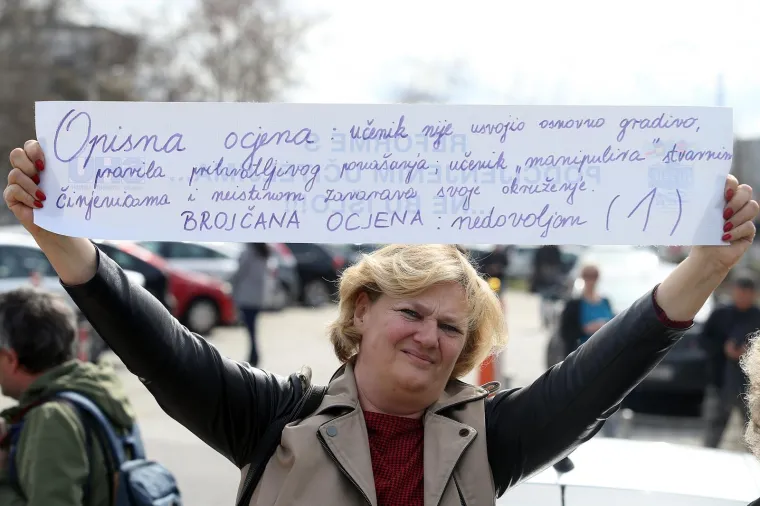 Opisna ocjena: učenik nije usvojio osnovno gradivo,
pravila prihvatljivog ponašanja; učenik "manipulira" stvarnim
činjenicama i neistinom zavarava svoje okruženje.
BROJČANA OCJENA: nedovoljan (1)